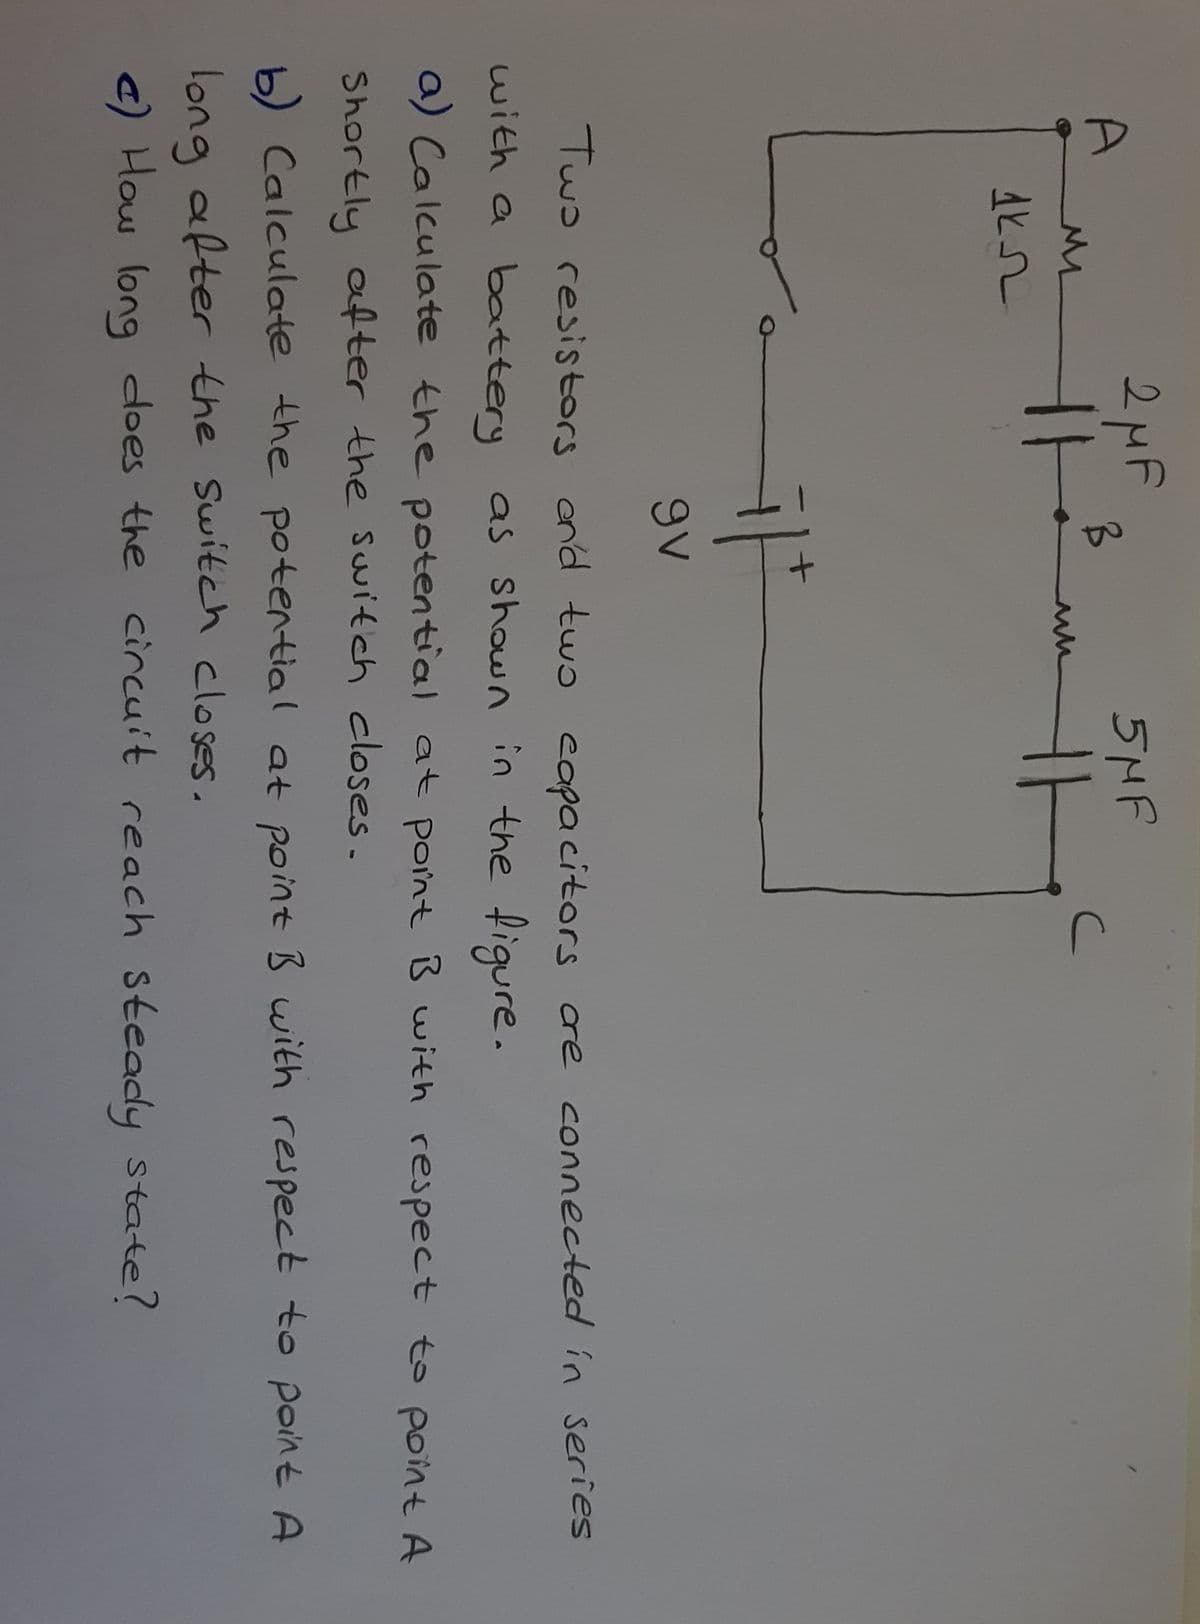 2μF 5μF
A B C
1kΩ
- +
9V
Two resistors and two capacitors are connected in series
with a battery as shown in the figure.
a) Calculate the potential at point B with respect to point A
shortly after the switch closes.
b) Calculate the potential at point B with respect to point A
long after the switch closes.
c) How long does the circuit reach steady state?